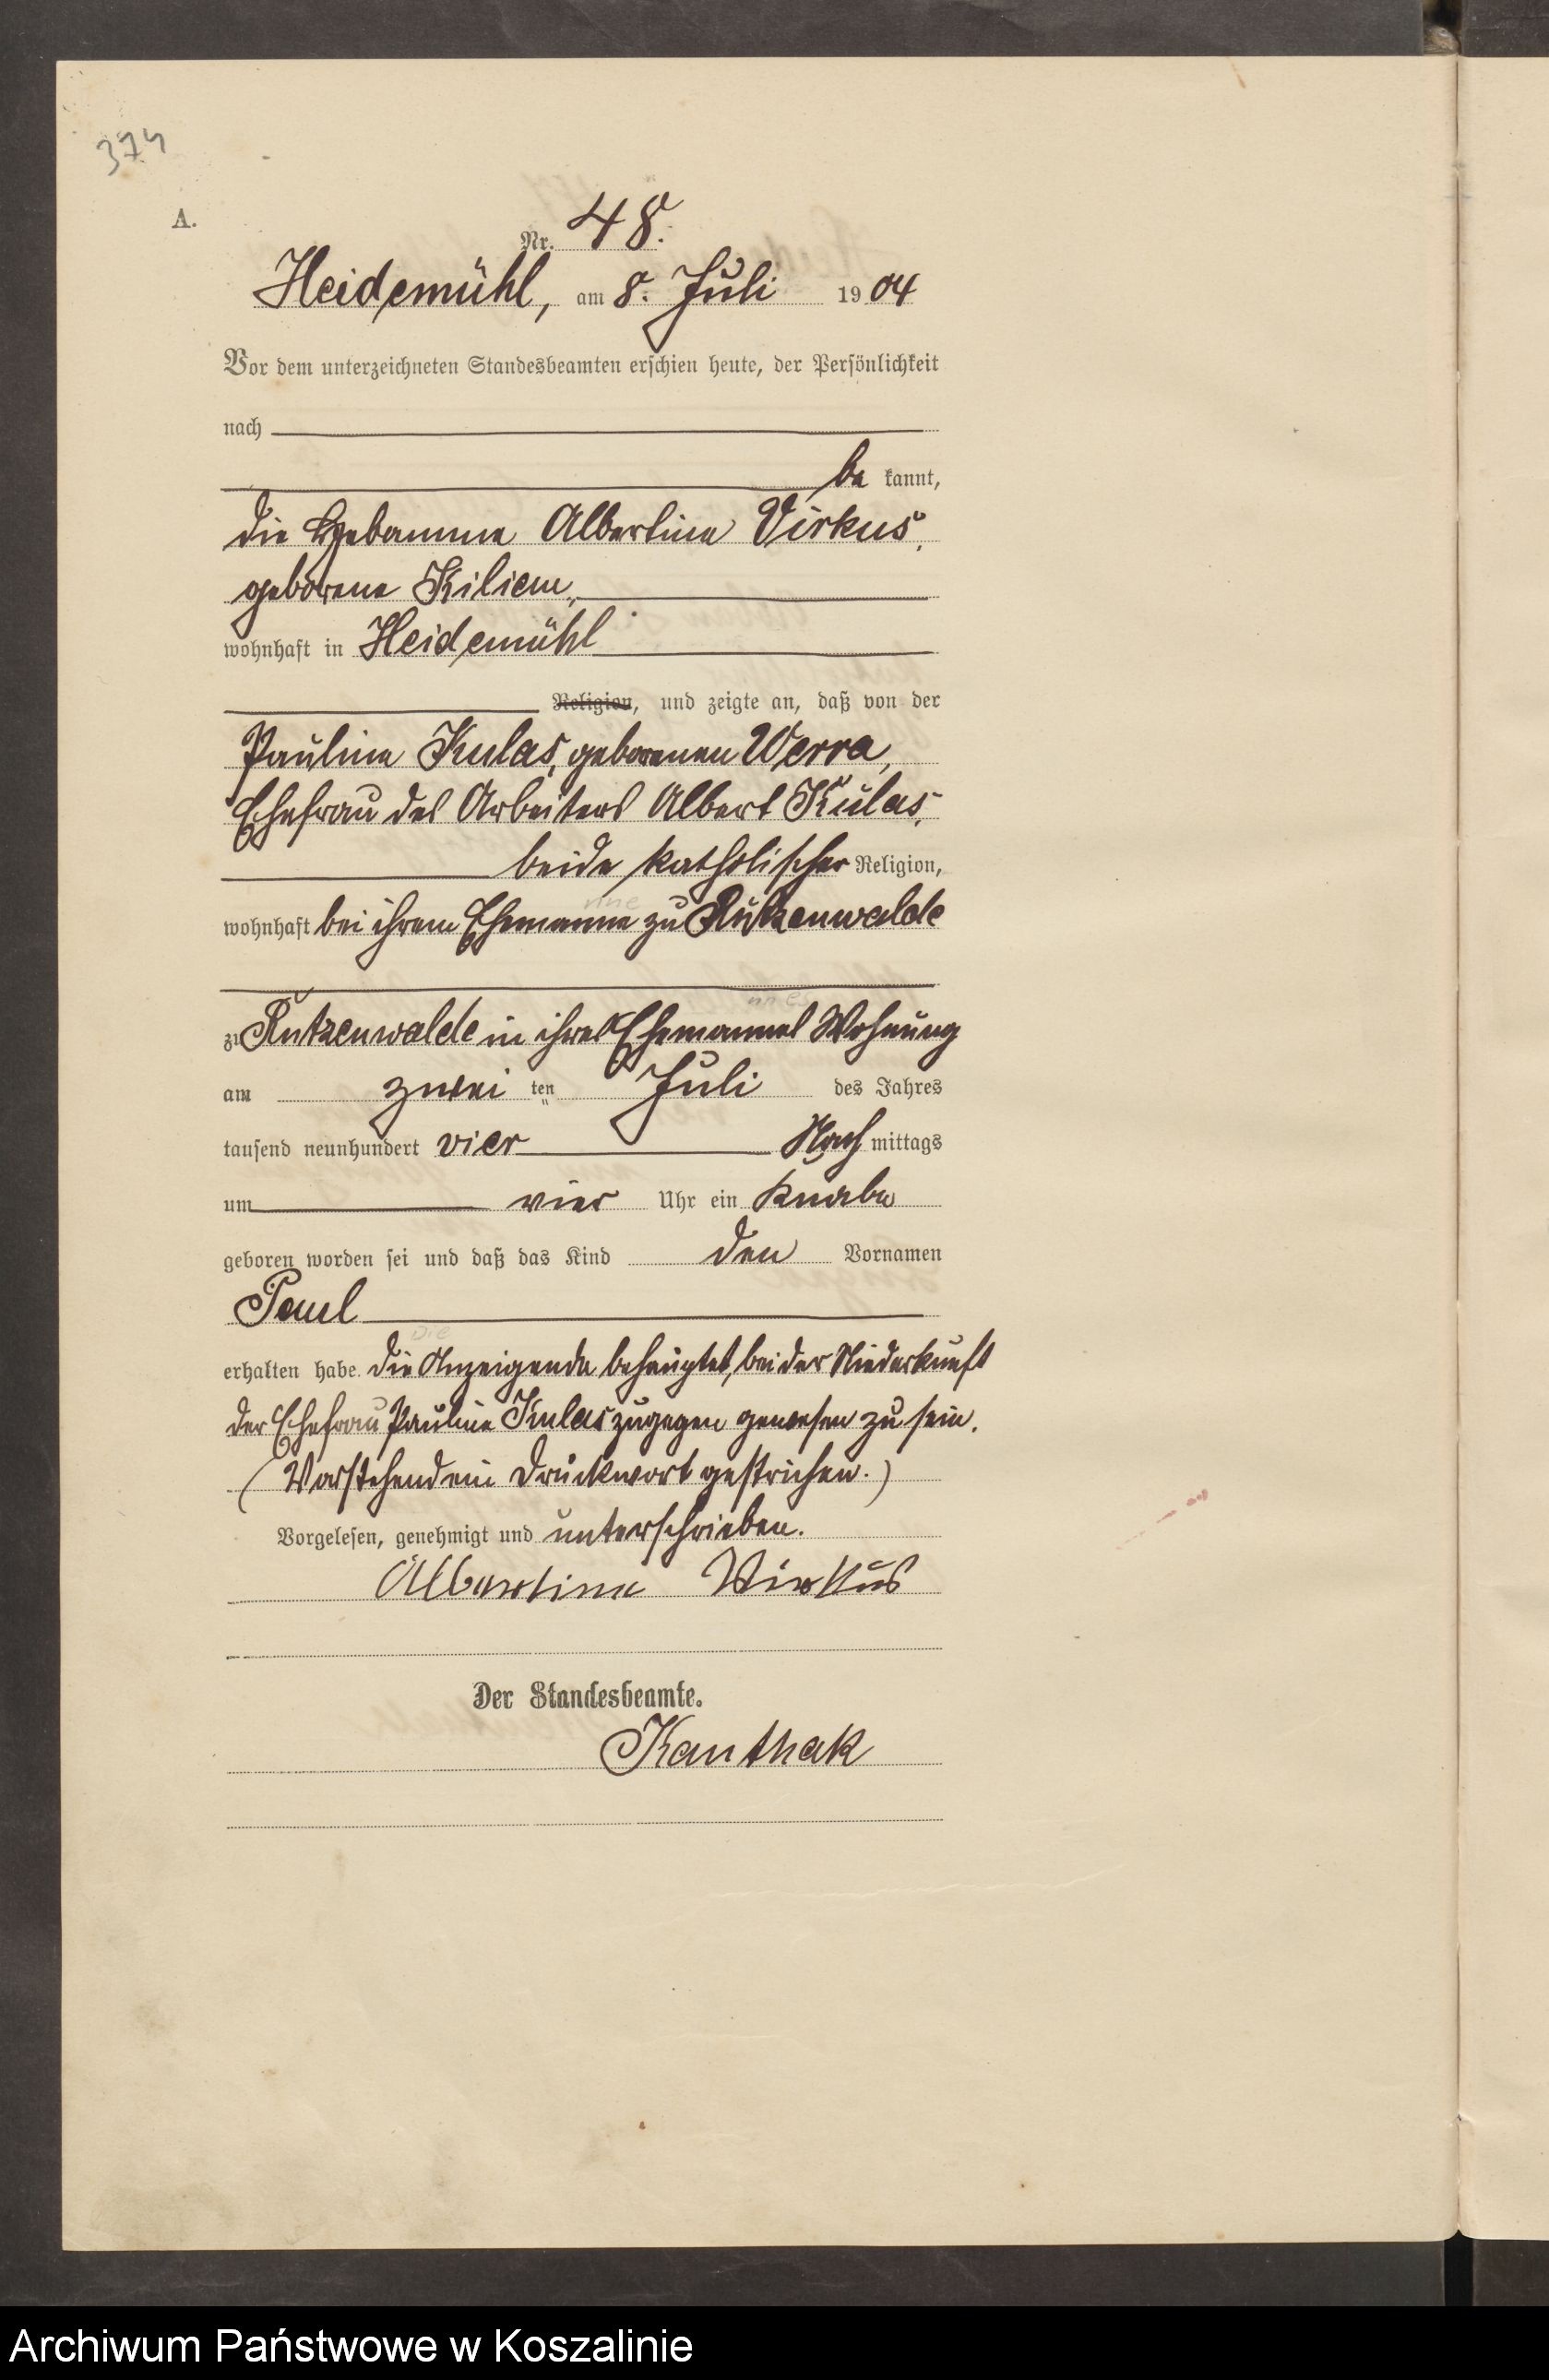 374
A.
Nr. 48.
Heidemühl, am 8. Juli 1904
Vor dem unterzeichneten Standesbeamten erschien heute, der Persönlichkeit
nach
be kannt,
die Hebamme Albertine Virkus,
geborene Kilian,
wohnhaft in Heidemühl
Religion, und zeigte an, daß von der
Pauline Kulas, geborenen Werra,
Ehefrau des Arbeiters Albert Kulas,
beide katholischer Religion,
wohnhaft bei ihrem Ehemanne zu Rützenwalde
zu Rützenwalde in ihres Ehemannes Wohnung
am zwei ten Juli des Jahres
tausend neunhundert vier Nach mittags
um vier Uhr ein Knabe
geboren worden sei und daß das Kind den Vornamen
Paul
erhalten habe. Die Anzeigende behauptet, bei der Niederkunft
der Ehefrau Pauline Kulas zugegen gewesen zu sein.
(Vorstehend ein Druckwort gestrichen.)
Vorgelesen, genehmigt und unterschrieben.
Albertine Wirkus
Der Standesbeamte.
Kanthak
Archiwum Państwowe w Koszalinie